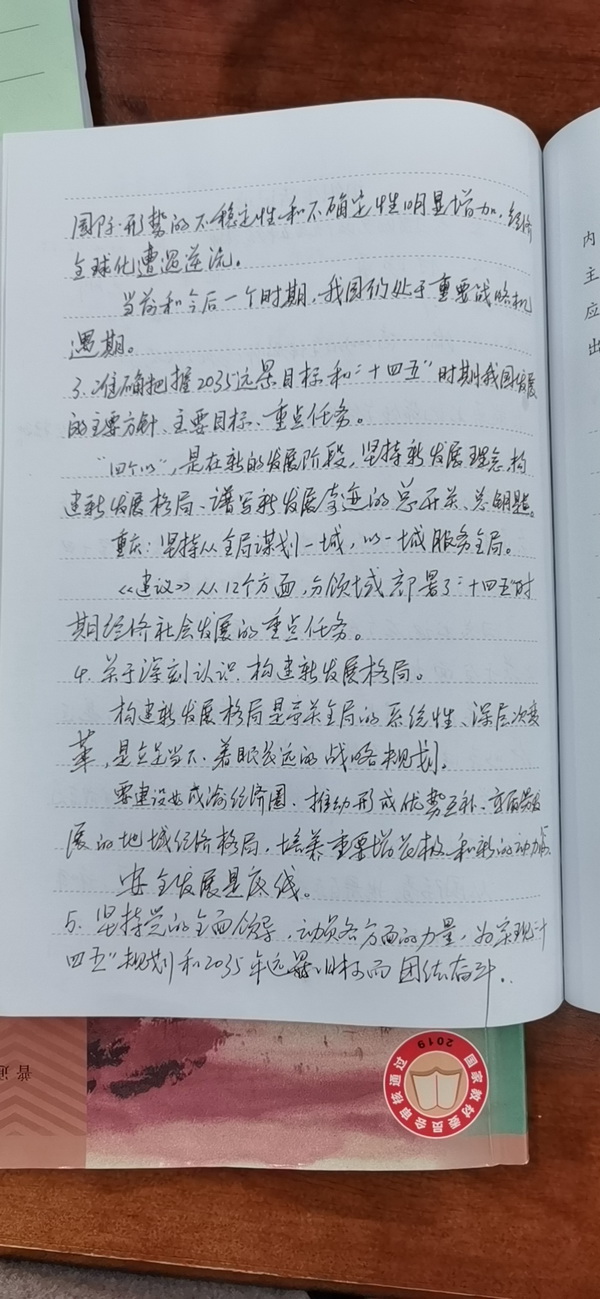 国际形势的不稳定性和不确定性明显增加,经济
全球化遭遇逆流。
当前和今后一个时期,我国仍处于重要战略机
遇期。
3.准确把握2035远景目标和"十四五"时期我国发展
的主要方针、主要目标、重点任务。
"四个以",是在新的发展阶段,坚持新发展理念,构
建新发展格局、谱写新发展奇迹的总开关、总钥匙。
重庆:坚持从全局谋划一域,以一域服务全局。
《建议》从12个方面,分领域部署了"十四五"时
期经济社会发展的重点任务。
4.关于深刻认识、构建新发展格局。
构建新发展格局是事关全局的系统性、深层次变
革,是立足当下、着眼长远的战略规划。
要建设好成渝经济圈、推动形成优势互补、高质量发
展的地域经济格局,培养重要增长极和新的动力源。
安全发展是底线。
5.坚持党的全面领导,动员各方面的力量,为实现"十
四五"规划和2035年远景目标而团结奋斗.
内
主
应
出
普通
国家教材委员会审核通过
2019